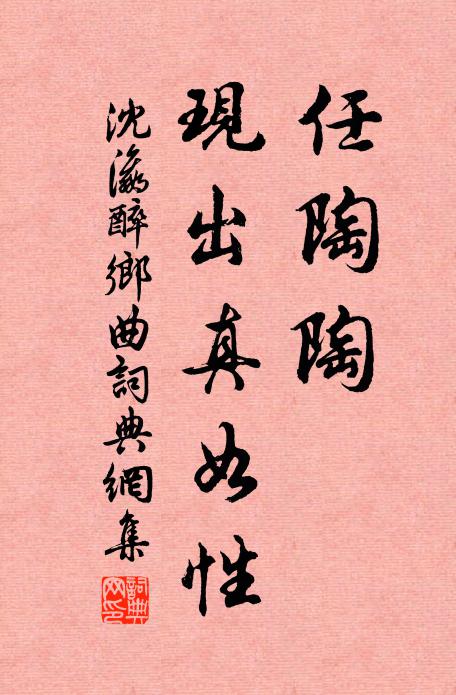 任陶陶
現出真如性
沈瀛醉鄉曲詞典網集
詞典网印